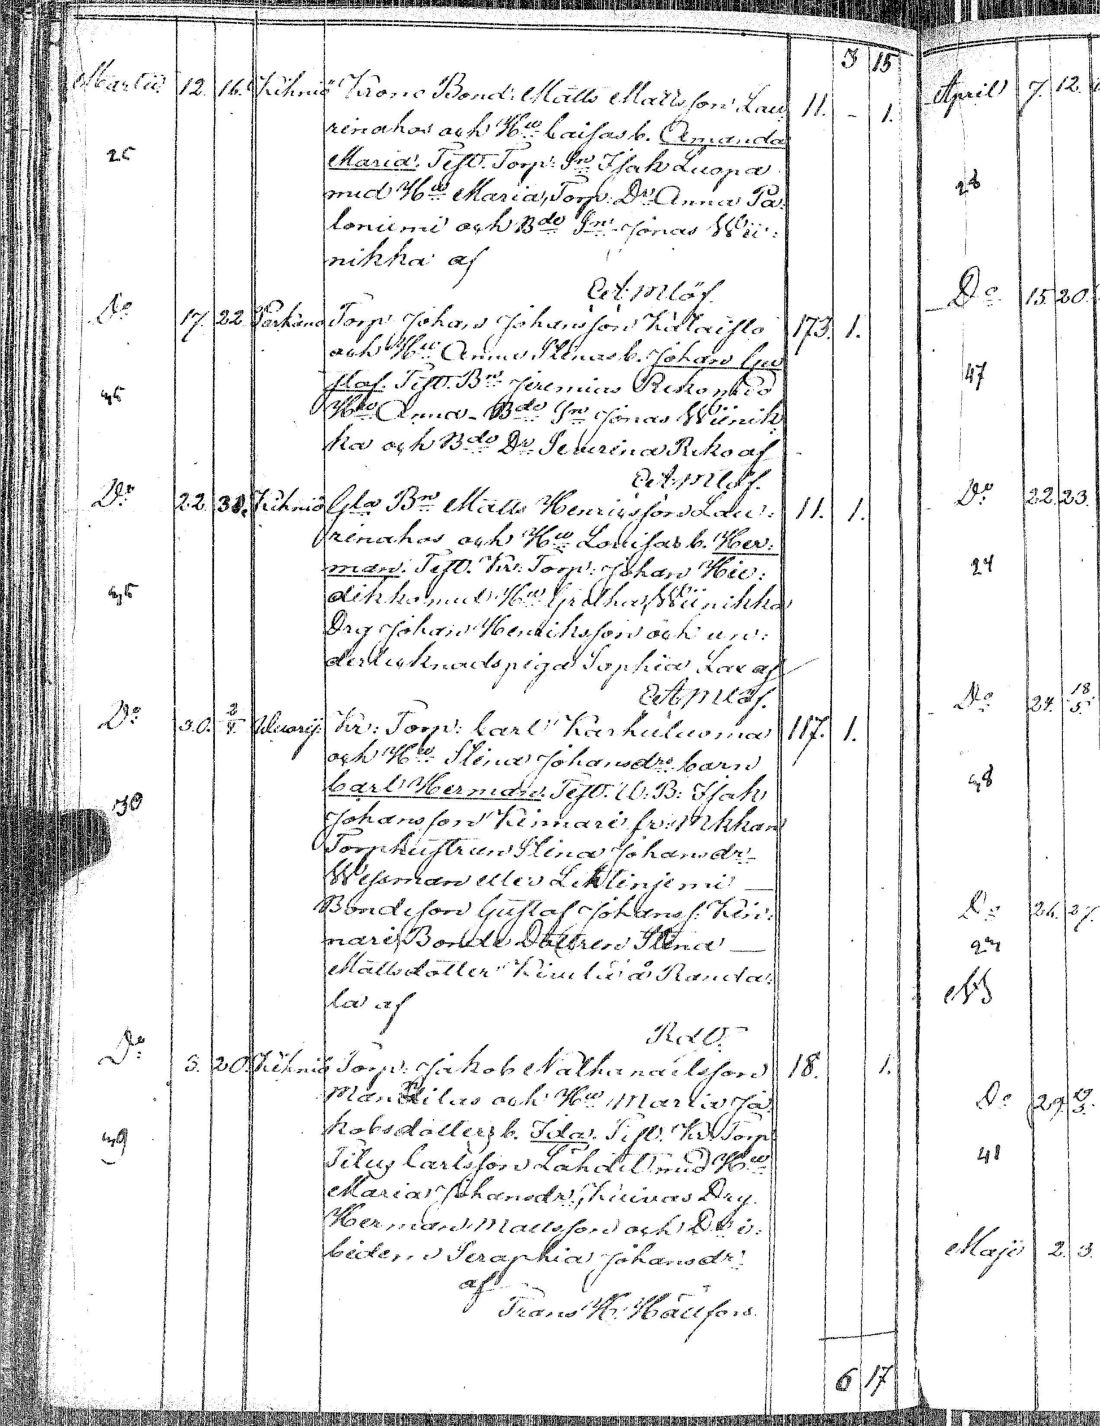 3 15
Martii 12. 16. Kihniö Krono Bond: Matts Mattsson Lau 11. - 1.
rinahos och Hu Caisas b. Amanda
25 Maria. Test. Torp: Sn Isak Luopa
med Hu Maria, Torp: Dr Anna Pa:
loniemi och Bde Sn Jonas Wii:
nikka af
Do 17. 22 Parkano Torp: Johan Johansson Kalaisto 173. 1.
och Hu Anna Stinas b. Johan Gu
staf. Test. Bn Jeremias Reko med
Hu Anna - Bde Sn Jonas Wiinik:
ka och Bde Dr Severina Reko af
Do 22. 31. Kihniö Gla Bn Matts Henricsson Lau: 11. 1.
rinahos och Hu Lovisas b. Her:
man. Test. Kr: Torp: Johan Hie:
dikko med Hu Gretha, Wiinikka
Drg Johan Henriksson och un:
dertecknads piga Sophia Lax af
Do 30. 2/4. Kr: Torp: Carl Karhuluoma 117. 1.
och Hu Stina Johansdrs barn
Carl Herman. Test. U: B: Isak
30 Johansson Kinnari fr:
Torphustrun Stina Johansdr
Wessman eller Lehtinjemi —
Bondeson Gustaf Johans s. Kin:
nari, Bonde Dottren Stina —
Mattsdotter å Randa:
la af
Do 3. 20. Kihniö Torp: Jakob Nathanaelsson 18. 1.
och Hu Maria Ja
kobsdotters b. Ida. Test. Kr: Torp:
39 Titus Carlsson Lahdet med Hu
Maria Johansdr, Kuivas Drg
Herman Mattsson och Dr i:
bidem Seraphia Johansdr
af
Frans H. Hällfors.
6 17
April 7. 12.
28
Do 15 20
47
Do 22 23.
24
Do 24. 18/5.
38
Do 26. 27.
27
Do 29.
41
Maji 2. 3.